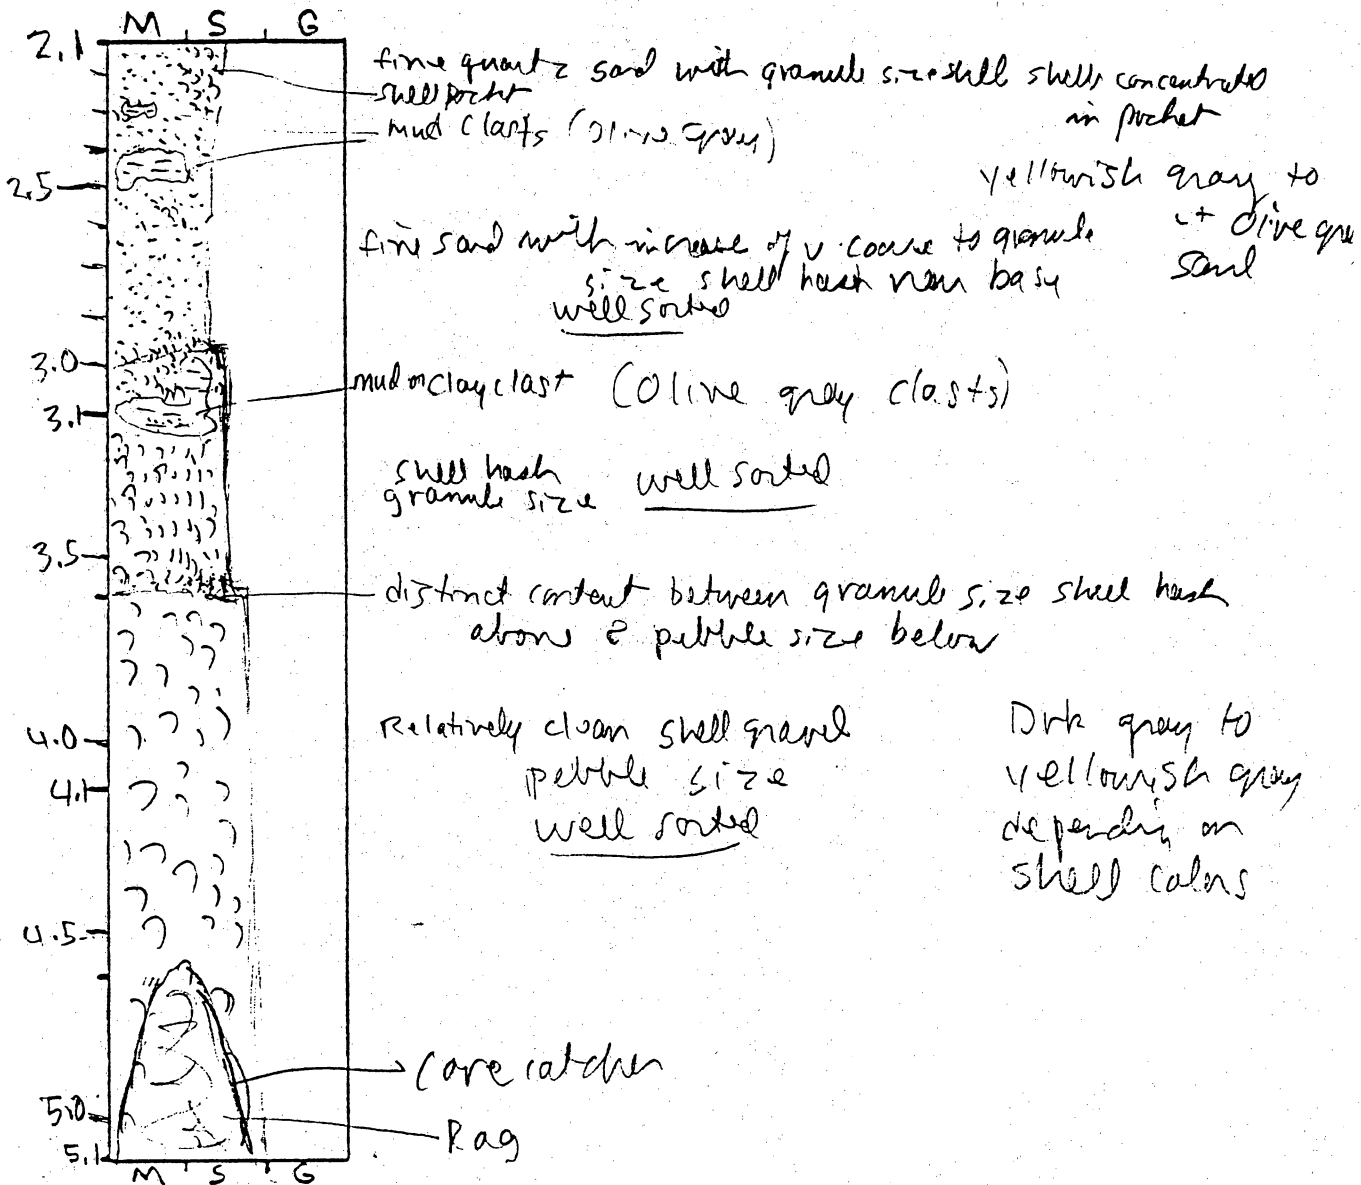 M S G
2.1
fine quartz sand with granule size shell shells concentrated
in pocket
shell pocket
mud clasts (olive gray)
yellowish gray to
lt olive gra
sand
2.5
fine sand with increase of v. coarse to granule
size shell hash near base
well sorted
3.0
mud or clay clast (Olive gray clasts)
3.1
shell hash
granule size well sorted
3.5
distinct contact between granule size shell hash
above & pebble size below
4.0
Relatively clean shell gravel
pebble size
well sorted
Drk gray to
yellowish gray
depending on
shell colors
4.1
4.5
Core catcher
5.0
Rag
5.1
M S G